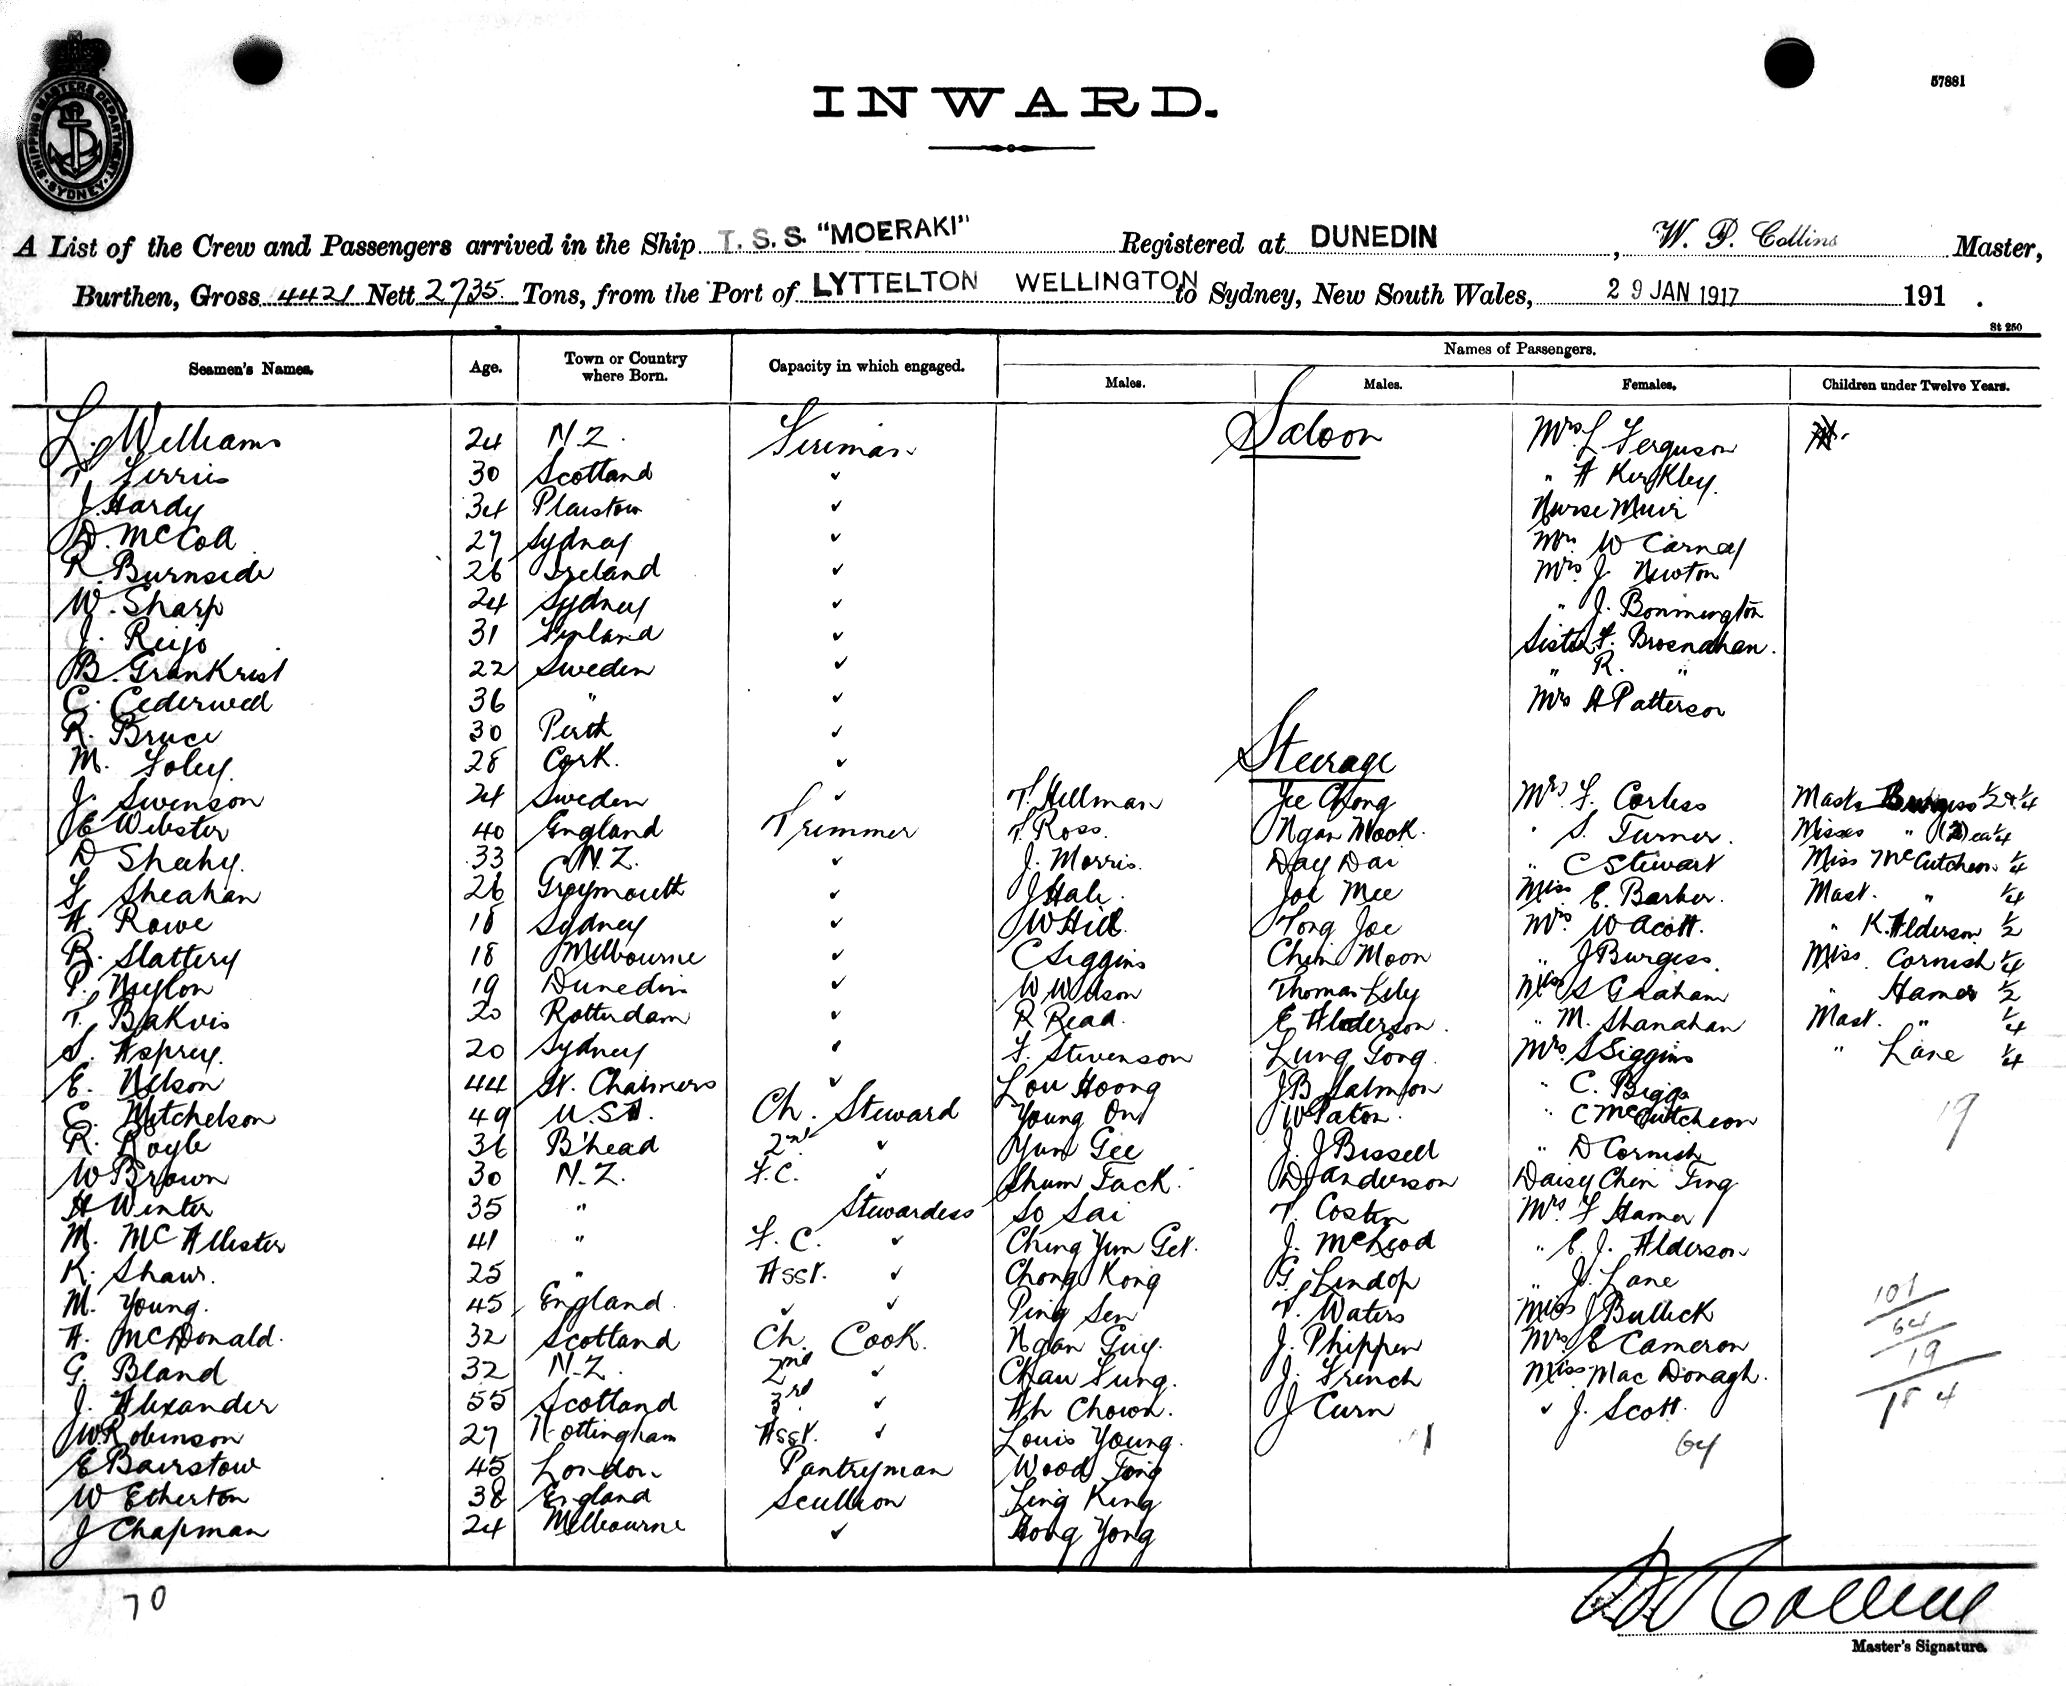 SHIPPING MASTERS DEPARTMENT · SYDNEY ·
57881
INWARD.
A List of the Crew and Passengers arrived in the Ship T.S.S. "MOERAKI" Registered at DUNEDIN, W. P. Collins Master,
Burthen, Gross 4421 Nett 2735 Tons, from the Port of LYTTELTON WELLINGTON to Sydney, New South Wales, 29 JAN 1917 191 .
St 250
Seamen's Names. Age. Town or Country where Born. Capacity in which engaged. Names of Passengers.
Males. Males. Females. Children under Twelve Years.
L. Williams 24 N.Z. Fireman Saloon Mrs L Ferguson
T. Ferries 30 Scotland ✓ " A Kirkley
J. Hardy 34 Plaistow ✓ Nurse Muir
D. McColl 27 Sydney ✓ Mrs. W Carney
R. Burnside 26 Ireland ✓ Mrs. J Newton
W. Sharp 24 Sydney ✓ " J. Bonnington
J. Reijo 31 Finland ✓ Sister F. Brosnahan.
B. Grankrist 22 Sweden ✓ " R. "
C. Cederwell 36 " ✓ Mrs A Patterson
R. Bruce 30 Perth ✓
M. Foley. 28 Cork. ✓ Steerage
J. Swenson 24 Sweden ✓ T. Hellman Yee Chong Mrs. F. Corless Mast. Burgess 1/2 & 1/4
E Webster 40 England Trimmer T. Ross. Ngan Mook. " S. Turner. Misses " (2) ea 1/4
D Sheehy. 33 N.Z. ✓ J. Morris. Day Dai " C Stewart Miss McCutcheon 1/4
F. Sheahan 26 Greymouth ✓ J Hale. Joe Mee Miss E. Barker. Mast. " 1/4
A. Rowe 18 Sydney ✓ W Hill. Fong Joe Mrs. W Acott. " K. Alderson 1/2
R. Slattery 18 Melbourne ✓ C Siggins Chin Moon " J Burgess. Miss Cornish 1/4
P. Nylon 19 Dunedin ✓ W Wilson Thomas Lily Miss S Graham " Hamer 1/2
T. Bakvis 20 Rotterdam ✓ R Read. E Alderson. " M. Shanahan Mast. " 1/4
S. Asprey. 20 Sydney ✓ F. Stevenson Lung Gong. Mrs S Siggins " Lane 1/4
E. Nelson 44 Pt. Chalmers ✓ Lou Hoong J B Salmon " C. Biggs
C. Mitchelson 49 U.S.A. Ch. Steward Young On W Paton. " C McCutcheon 19
R. Royle 36 B'head 2nd ✓ Yum Gee J. J Bissell " D Cornish
W Brown 30 N.Z. F.C. ✓ Shum Tack. D Anderson Daisy Chin Ting
H Winter 35 " Stewardess So Sai T. Costin Mrs F Hamer
M. McAllister 41 " F.C. ✓ Ching Yum Get. J. McLeod " E. J. Alderson
K. Shaw. 25 " Asst. ✓ Chong Kong G. Lindop " J. Lane
M. Young. 45 England. ✓ ✓ Ping Sen T. Waters Miss J Bullick 101
A. McDonald. 32 Scotland Ch. Cook. Ngan Guy. J. Phippen Mrs E Cameron 64
G. Bland 32 N.Z. 2nd ✓ Chau Sung. J. French Miss Mac Donagh. 19
J. Alexander 55 Scotland 3rd ✓ Ah Chown. J Curn ✓ J. Scott. 184
W. Robinson 27 Nottingham Asst. ✓ Louis Young. 64
E Bairstow 45 London Pantryman Wood Tong
W Etherton 38 England Scullion Ling King
J Chapman 24 Melbourne ✓ Hong Yong
70
W. P. Collins
Master's Signature.